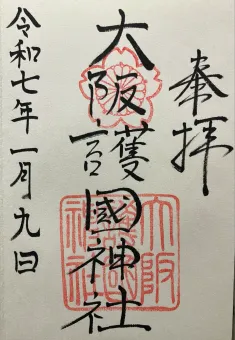 奉拝
大阪護國神社
令和七年一月九日
大阪
護國
神社